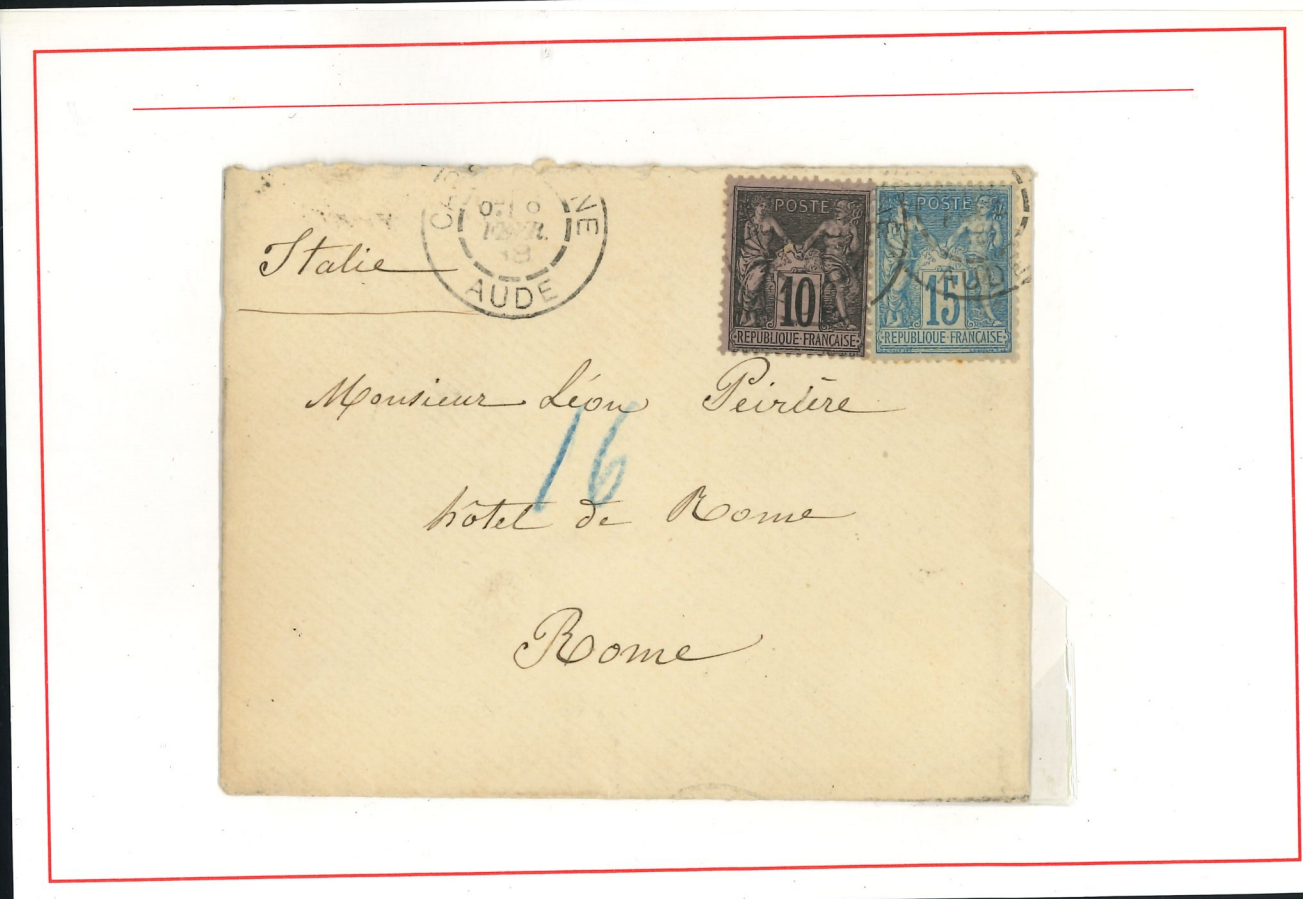 Italie
AUDE
POSTE
10
REPUBLIQUE FRANCAISE
POSTE
15
REPUBLIQUE FRANCAISE
AUDE
Monsieur Léon
16
hôtel de Rome
Rome